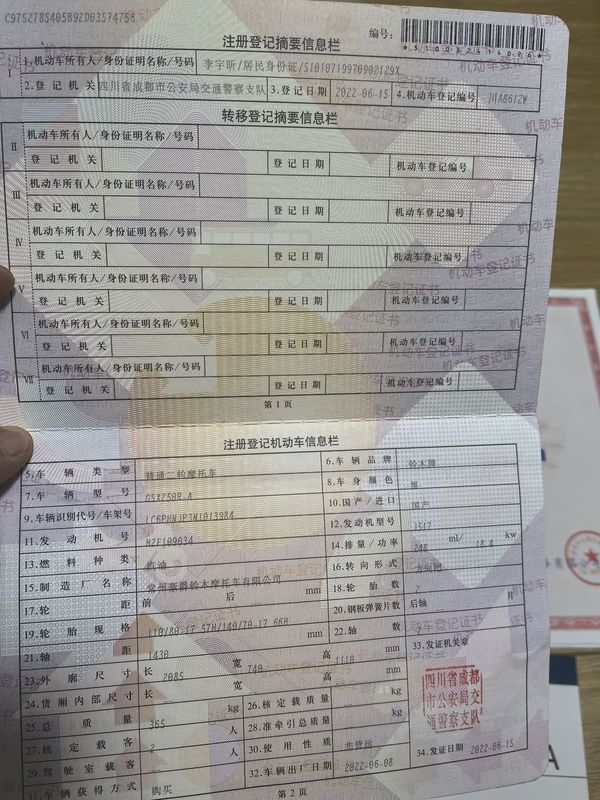 C975278540SB92D03574756
编号:
*510032414026*
注册登记摘要信息栏
Ⅰ 1.机动车所有人/身份证明名称/号码 李宇昕/居民身份证/51010719970902129X
2.登记机关 四川省成都市公安局交通警察支队 3.登记日期 2022-06-15 4.机动车登记编号 川A8612W
转移登记摘要信息栏
Ⅱ 机动车所有人/身份证明名称/号码
登记机关 登记日期 机动车登记编号
Ⅲ 机动车所有人/身份证明名称/号码
登记机关 登记日期 机动车登记编号
Ⅳ 机动车所有人/身份证明名称/号码
登记机关 登记日期 机动车登记编号
Ⅴ 机动车所有人/身份证明名称/号码
登记机关 登记日期 机动车登记编号
Ⅵ 机动车所有人/身份证明名称/号码
登记机关 登记日期 机动车登记编号
Ⅶ 机动车所有人/身份证明名称/号码
登记机关 登记日期 机动车登记编号
第1页
注册登记机动车信息栏
5.车辆类型 普通二轮摩托车 6.车辆品牌 铃木牌
7.车辆型号 GSX250R-A 8.车身颜色 黑
9.车辆识别代号/车架号 LC6PHNJP3N1013984 10.国产/进口 国产
11.发动机号 H2F109034 12.发动机型号
13.燃料种类 汽油 14.排量/功率 248 ml/ 18.4 kw
15.制造厂名称 常州豪爵铃木摩托车有限公司 16.转向形式 方向把
17.轮距 前 后 mm 18.轮胎数 2
19.轮胎规格 110/80-17 57H/140/70-17 66H 20.钢板弹簧片数 后轴 片
21.轴距 1430 mm 22.轴数 2
23.外廓尺寸 长 2085 宽 740 高 1110 mm 33.发证机关章
24.货厢内部尺寸 长 宽 高 mm
25.总质量 365 kg 26.核定载质量 kg
27.核定载客 2 人 28.准牵引总质量 kg
29.驾驶室载客 人 30.使用性质 非营运
31.车辆获得方式 购买 32.车辆出厂日期 2022-06-08 34.发证日期 2022-06-15
四川省成都
市公安局交
通警察支队
第2页